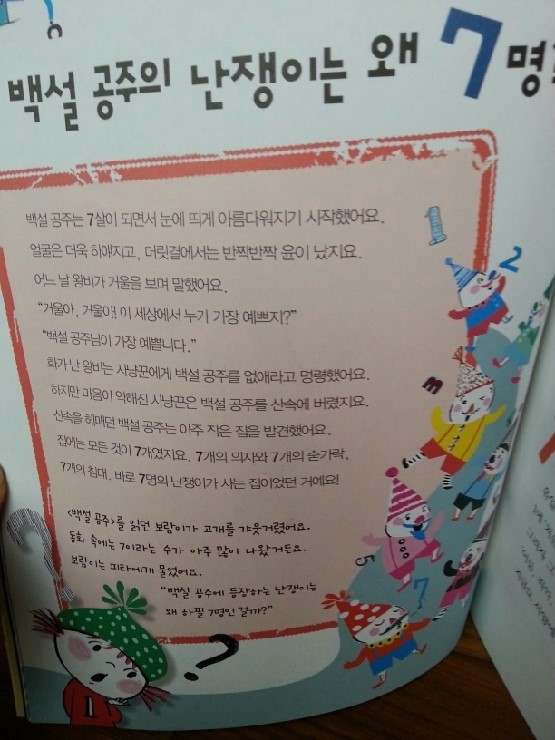 백설 공주의 난쟁이는 왜 7명
백설 공주는 7살이 되면서 눈에 띄게 아름다워지기 시작했어요.
얼굴은 더욱 하얘지고, 머릿결에서는 반짝반짝 윤이 났지요.
어느 날 왕비가 거울을 보며 말했어요.
"거울아, 거울아! 이 세상에서 누가 가장 예쁘지?"
"백설 공주님이 가장 예쁩니다."
화가 난 왕비는 사냥꾼에게 백설 공주를 없애라고 명령했어요.
하지만 마음이 약해진 사냥꾼은 백설 공주를 산속에 버렸지요.
산속을 헤매던 백설 공주는 아주 작은 집을 발견했어요.
집에는 모든 것이 7개였지요. 7개의 의자와 7개의 숟가락,
7개의 침대. 바로 7명의 난쟁이가 사는 집이었던 거예요!
<백설 공주>를 읽던 보람이가 고개를 갸웃거렸어요.
동화 속에는 7이라는 수가 아주 많이 나왔거든요.
보람이는 피타에게 물었어요.
"백설 공주에 등장하는 난쟁이는
왜 하필 7명인 걸까?"
1
2
3
5
7
?